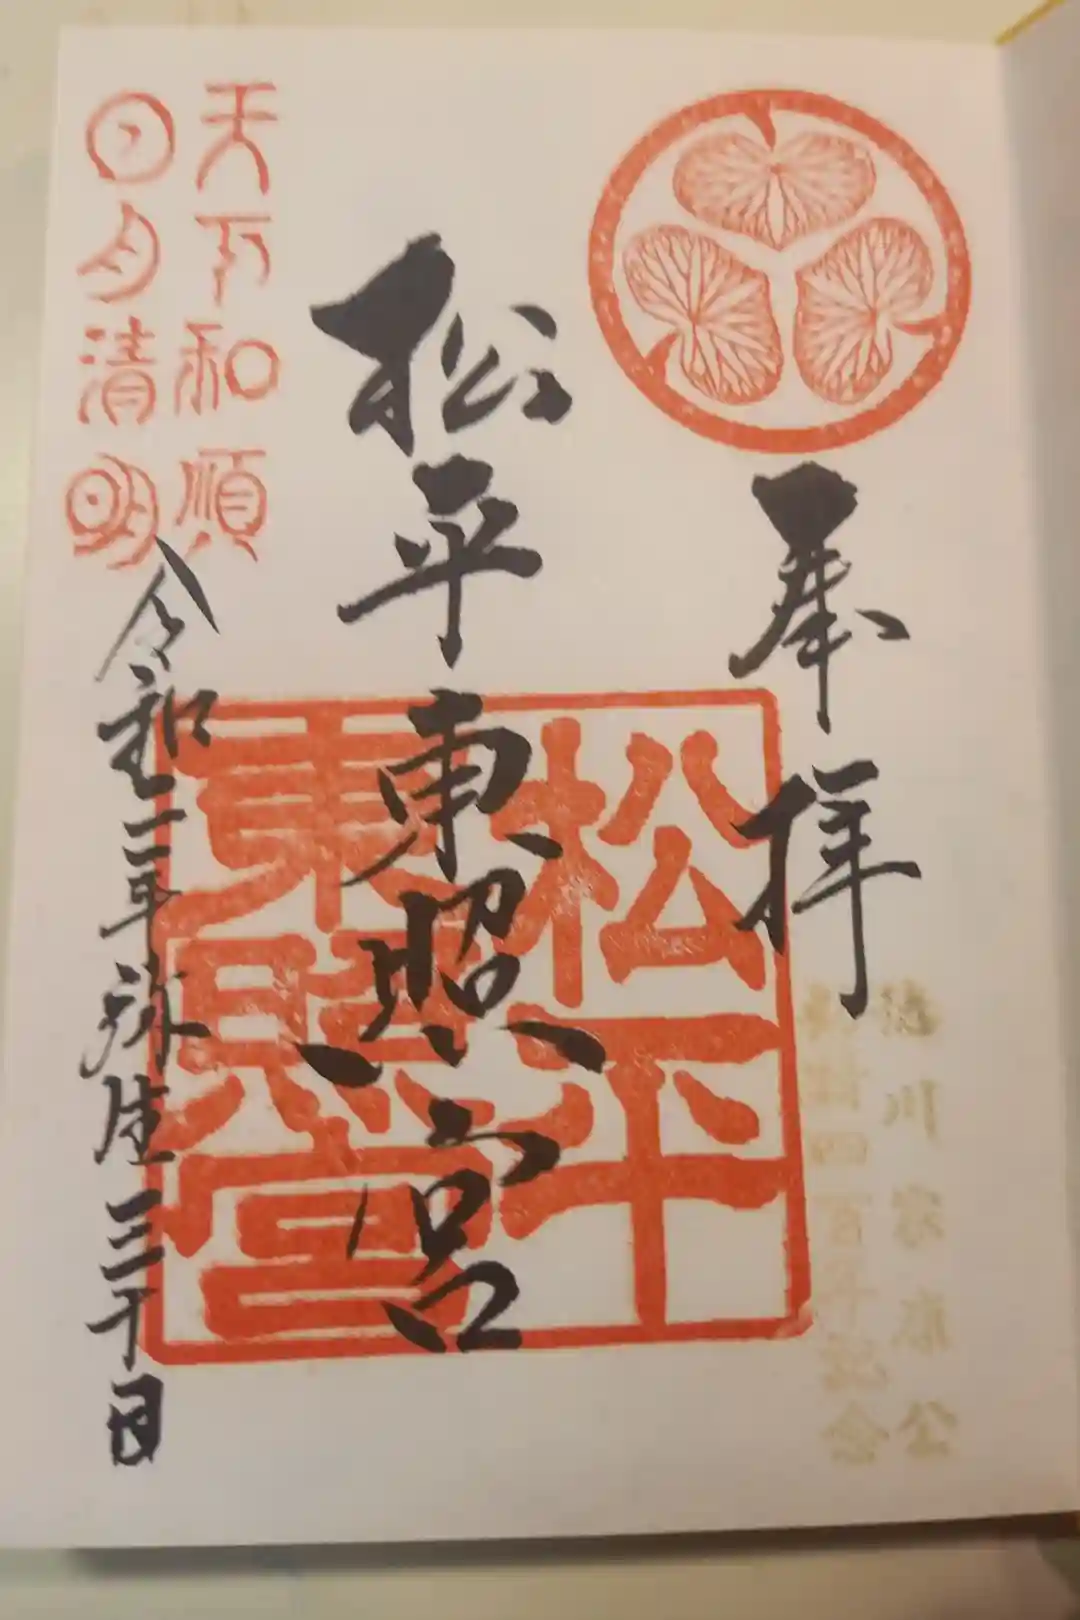 奉拝
徳川家康公
御遺訓百年記念
松平東照宮
松平
東照宮
天下和順
日月清明
令和二年弥生三十日